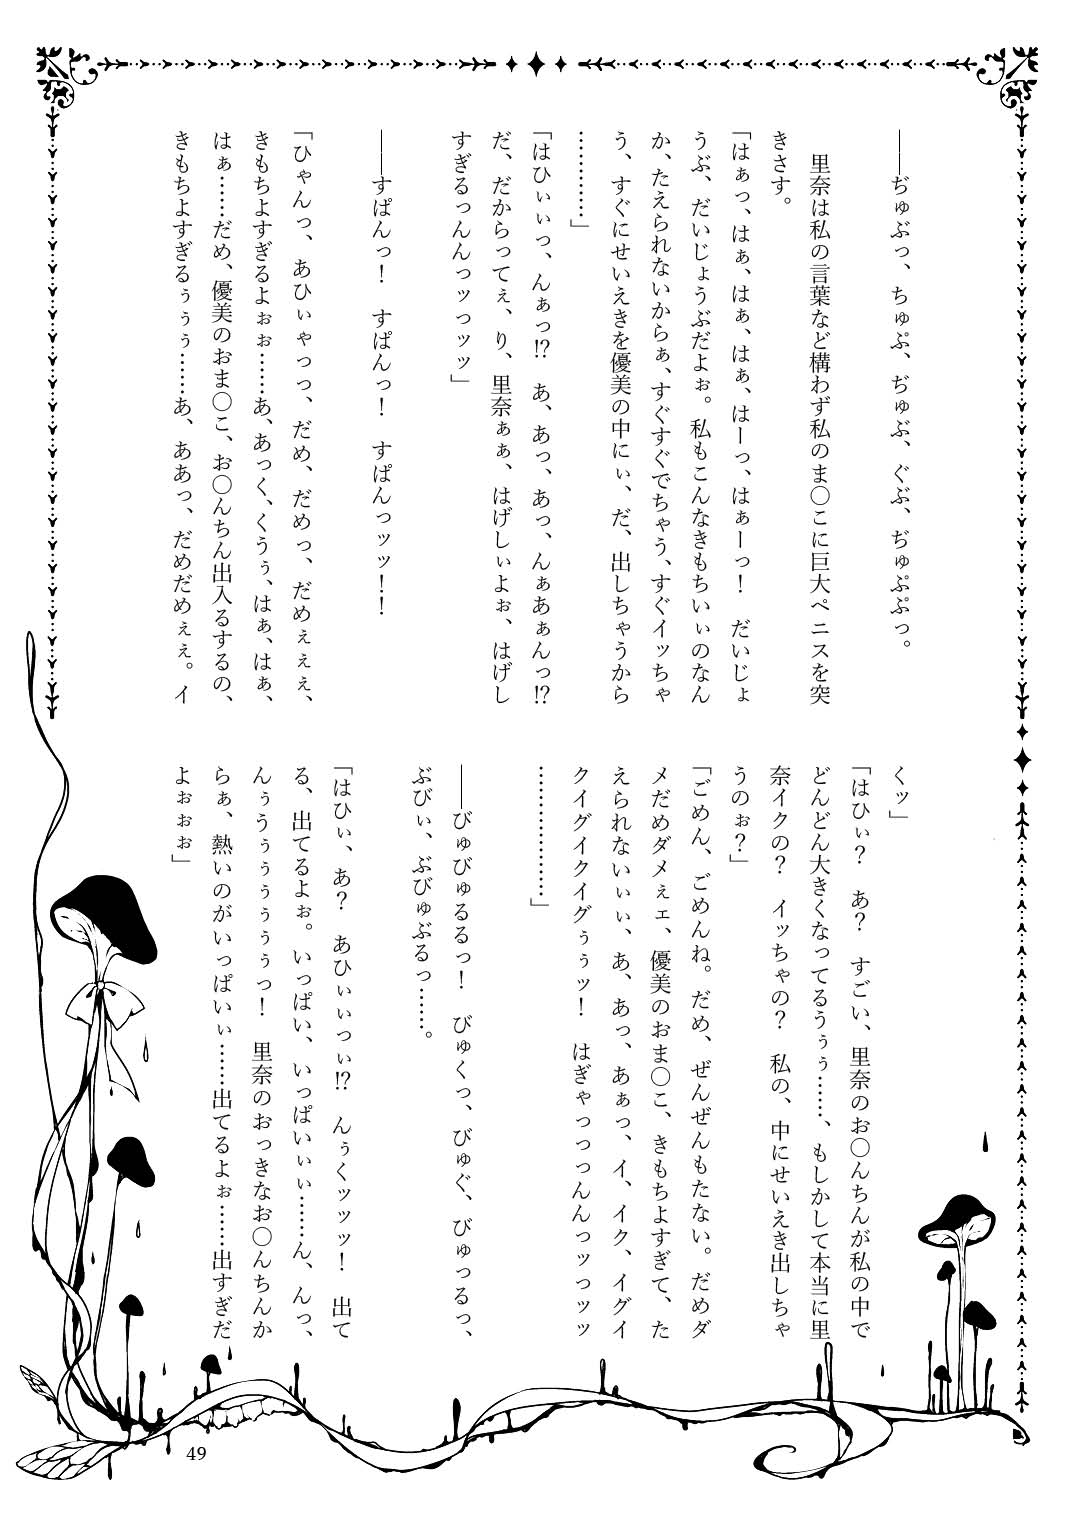 ――ぢゅぶっ、ちゅぷ、ぢゅぶ、ぐぶ、ぢゅぷぷっ。
　里奈は私の言葉など構わず私のま〇こに巨大ペニスを突
きさす。
「はぁっ、はぁ、はぁ、はぁ、はーっ、はぁーっ！　だいじょ
うぶ、だいじょうぶだよぉ。私もこんなきもちいぃのなん
か、たえられないからぁ、すぐすぐでちゃう、すぐイッちゃ
う、すぐにせいえきを優美の中にぃ、だ、出しちゃうから
…………」
「はひぃぃっ、んぁっ!?　あ、あっ、あっ、んぁあぁんっ!?
だ、だからってぇ、り、里奈ぁぁ、はげしぃよぉ、はげし
すぎるっんんっッっッッ」
――すぱんっ！　すぱんっ！　すぱんっッッ！！
「ひゃんっ、あひぃゃっっ、だめ、だめっ、だめぇぇぇ、
きもちよすぎるよぉぉ……あ、あっく、くうぅ、はぁ、はぁ、
はぁ……だめ、優美のおま〇こ、お〇んちん出入るするの、
きもちよすぎるぅぅぅ……あ、ああっ、だめだめぇぇ。イ
くッ」
「はひぃ？　あ？　すごい、里奈のお〇んちんが私の中で
どんどん大きくなってるうぅぅ……、もしかして本当に里
奈イクの？　イッちゃの？　私の、中にせいえき出しちゃ
うのぉ？」
「ごめん、ごめんね。だめ、ぜんぜんもたない。だめダ
メだめダメぇェ、優美のおま〇こ、きもちよすぎて、た
えられないぃぃ、あ、あっ、あぁっ、イ、イク、イグイ
クイグイクイグぅぅッ！　はぎゃっっっんんっッっッッ
………………」
――びゅびゅるるっ！　びゅくっ、びゅぐ、びゅっるっ、
ぶびぃ、ぶびゅぶるっ……。
「はひぃ、あ？　あひぃぃっぃ!?　んぅくッッッ！　出て
る、出てるよぉ。いっぱい、いっぱいぃぃ……ん、んっ、
んぅうぅぅぅぅぅぅっ！　里奈のおっきなお〇んちんか
らぁ、熱いのがいっぱいぃ……出てるよぉ……出すぎだ
よぉぉぉ」
49